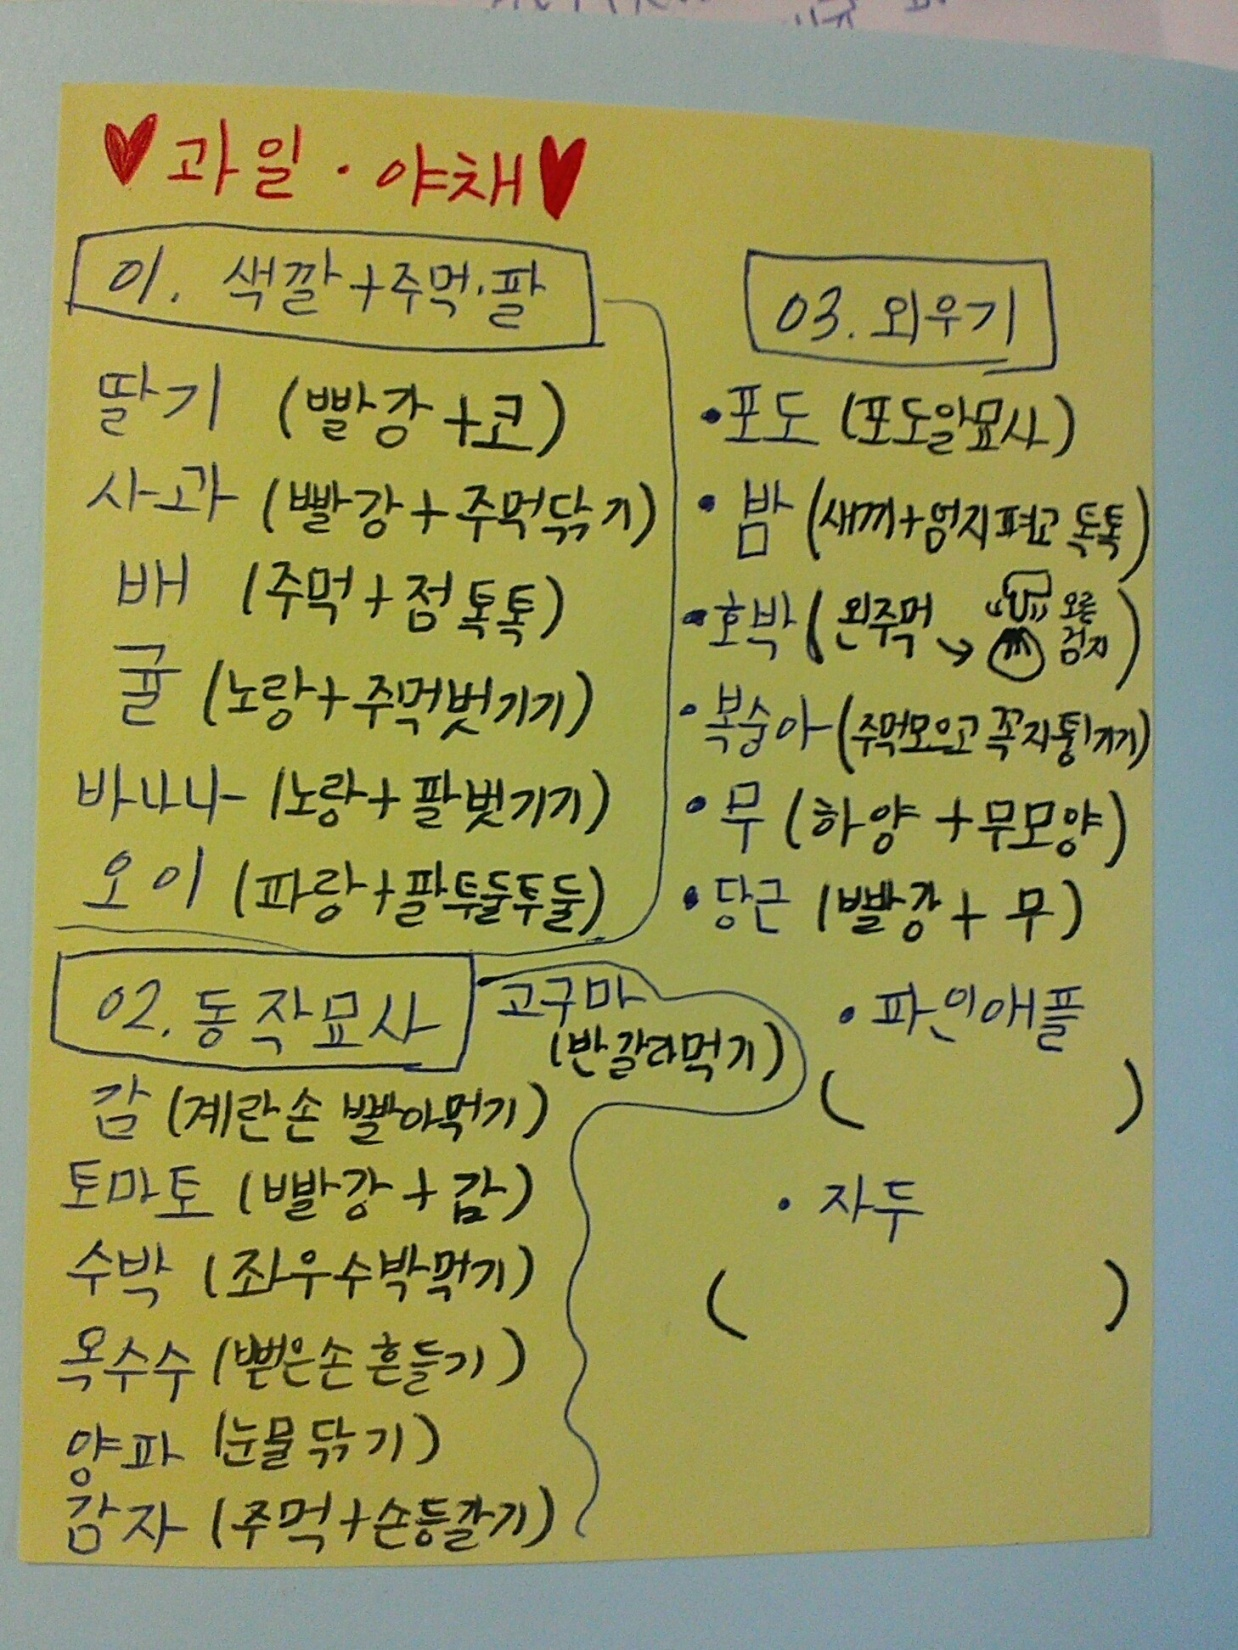 ♥과일·야채♥
01. 색깔+주먹·팔
딸기 (빨강+코)
사과 (빨강+주먹닦기)
배 (주먹+점톡톡)
귤 (노랑+주먹벗기기)
바나나 (노랑+팔벗기기)
오이 (파랑+팔투둘투둘)
02. 동작묘사
고구마
(반갈라먹기)
감 (계란손 빨아먹기)
토마토 (빨강+감)
수박 (좌우수박먹기)
옥수수 (뻗은손 흔들기)
양파 (눈물닦기)
감자 (주먹+손등갈기)
03. 외우기
·포도 (포도알묘사)
·밤 (새끼+엄지펴고 톡톡)
·호박 (왼주먹 → 오른
검지)
·복숭아 (주먹모으고 꼭지튕기기)
·무 (하양+무모양)
·당근 (빨강+무)
·파인애플
( )
·자두
( )